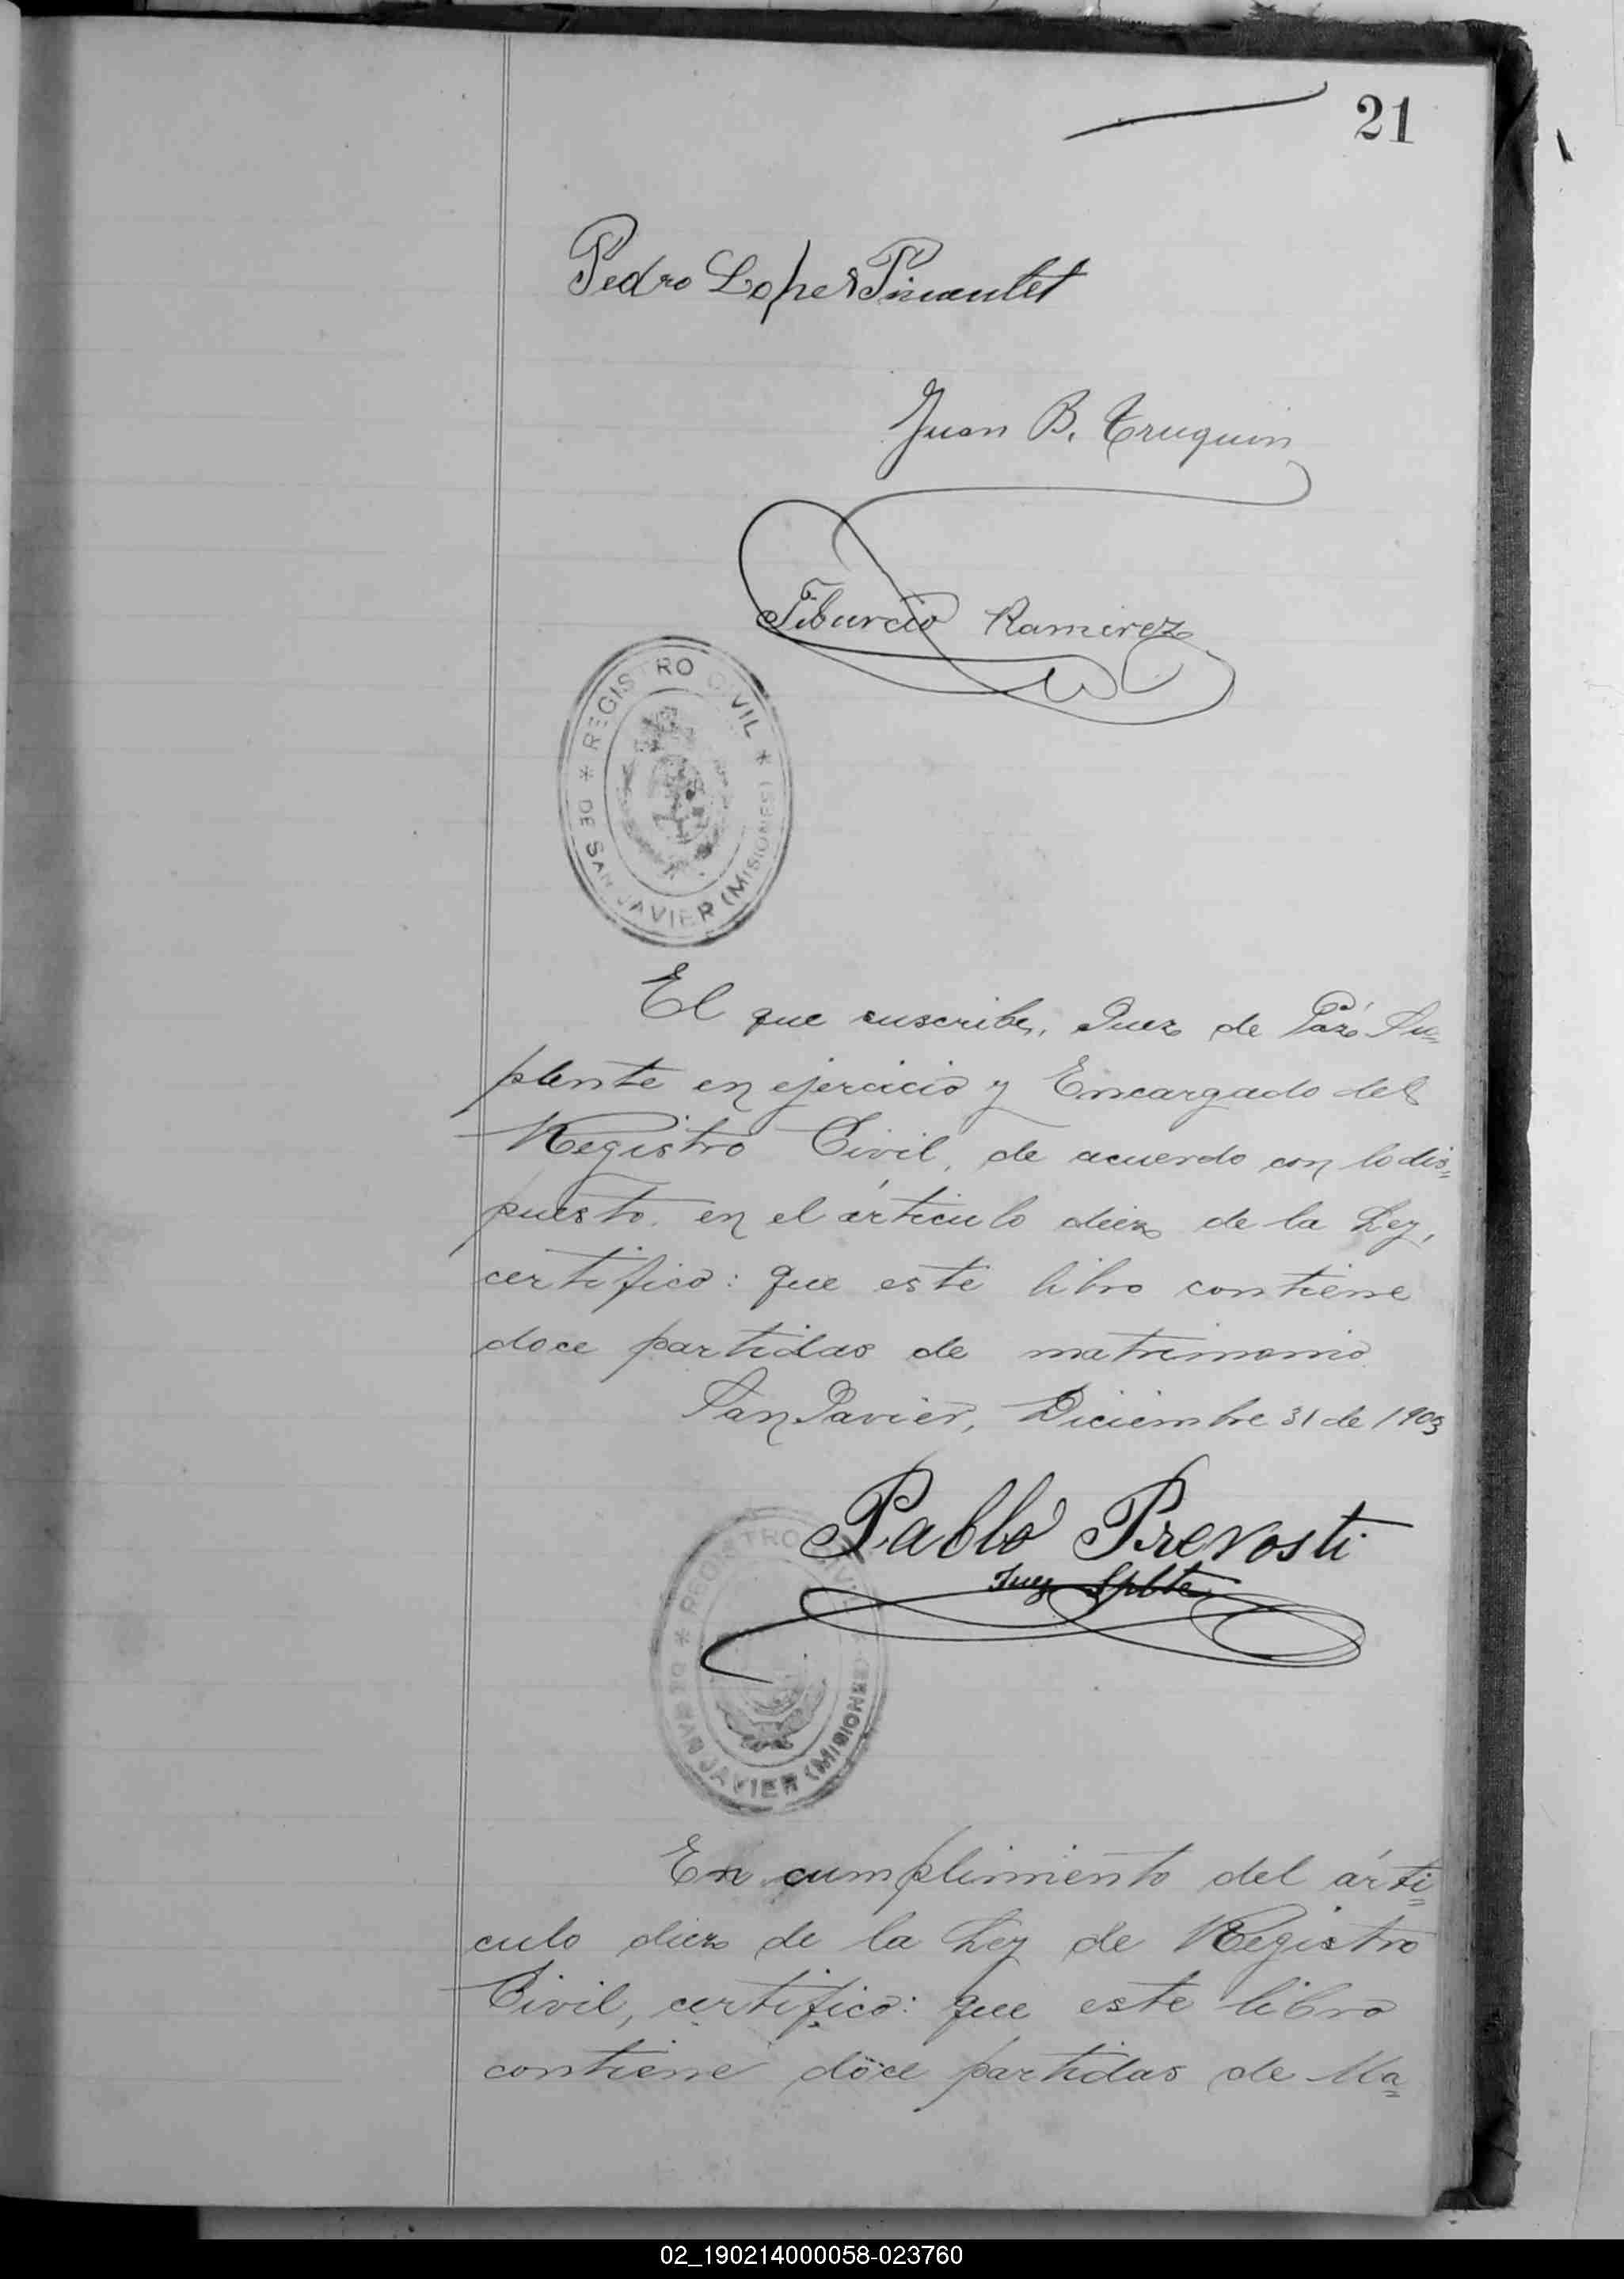 21
Pedro Lopes Pimantel
Juan B. Truquin
Tiburcio Ramirez
* REGISTRO CIVIL *
DE SAN JAVIER (MISIONES)
El que suscribe, Juez de Paz Su=
plente en ejercicio y Encargado del
Registro Civil, de acuerdo con lo dis=
puesto en el árticulo diez de la Ley,
certifico: que este libro contiene
doce partidas de matrimonio
San Javier, Diciembre 31 de 1903
Pablo Prevosti
Juez Splte
* REGISTRO CIVIL *
DE SAN JAVIER (MISIONES)
En cumplimiento del árti=
culo diez de la Ley de Registro
Civil, certifico: que este libro
contiene doce partidas de Ma=
02_190214000058-023760